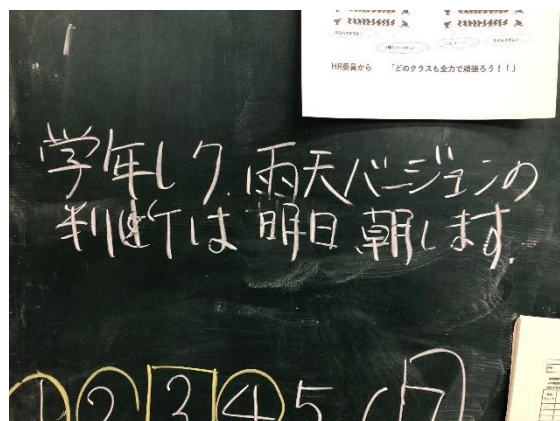 HR委員から 「どのクラスも全力で頑張ろう！！」
学年レク．雨天バージョンの
判断は明日朝します．
1 2 3 4 5 6 7